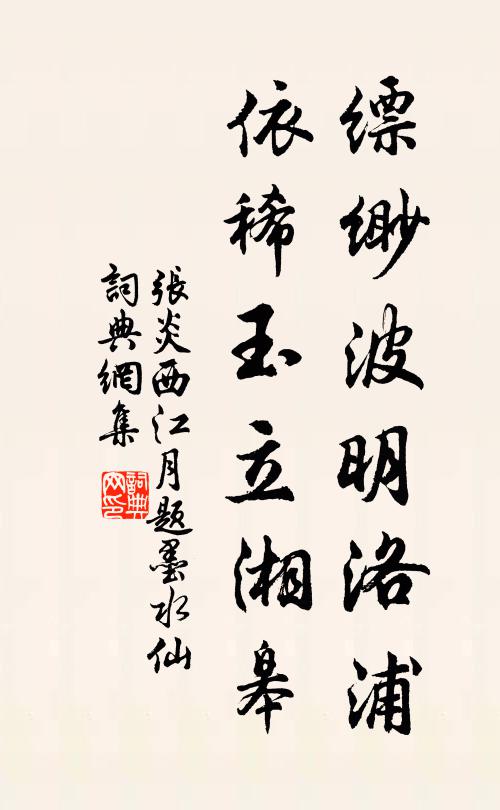 缥缈波明洛浦
依稀玉立湘皋
張炎西江月题墨水仙
詞典網集
詞典网印